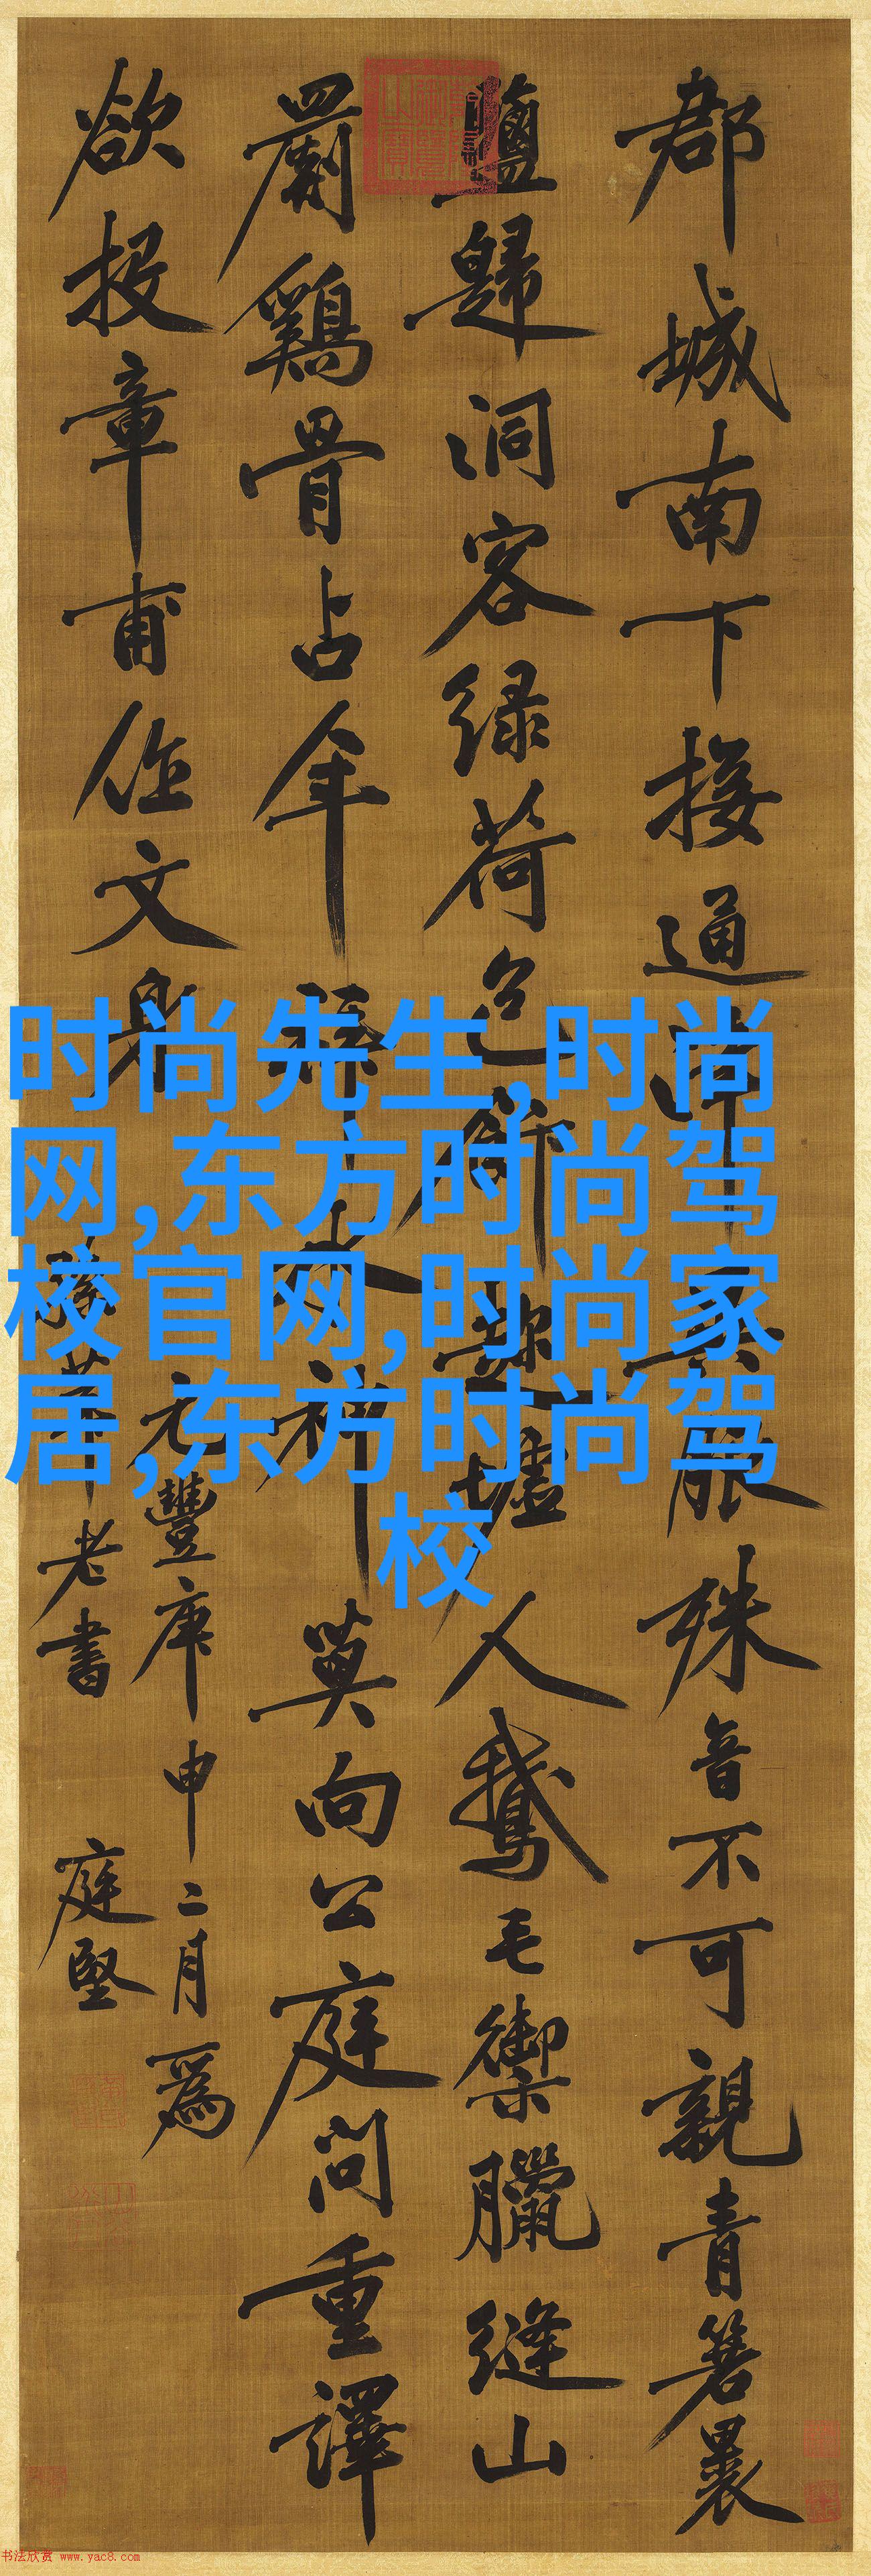 郡城南下接通津異服殊音不可親青箬裹
鹽歸洞客緑荷包飯趂墟人鵞毛禦臘縫山
罽鷄骨占年拜水神莫向公庭問重譯
欲投章甫作文身
元豐庚申二月爲
老書 庭堅
时尚先生,时尚
网,东方时尚驾
校官网,时尚家
居,东方时尚驾
校
书法欣赏 www.yac8.com